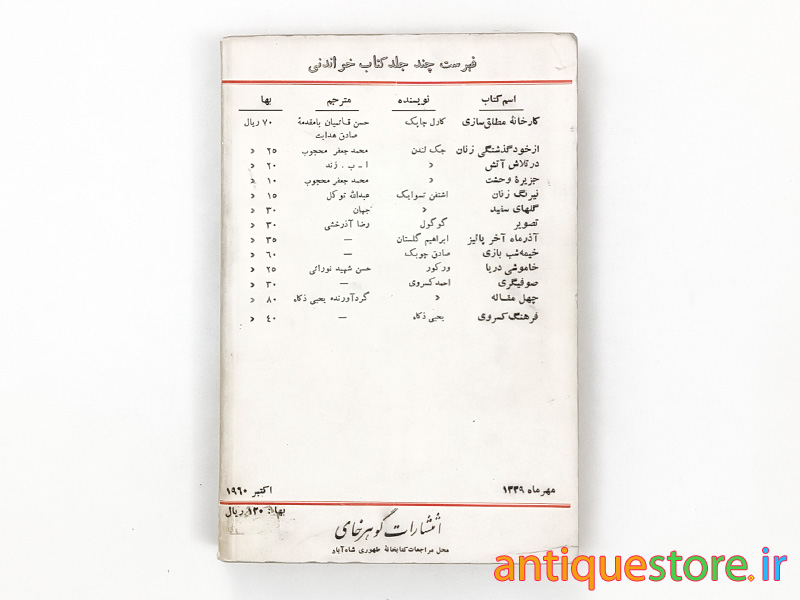 فهرست چند جلد کتاب خواندنی
اسم کتاب نویسنده مترجم بها
کارخانهٔ مطلق سازی کارل چاپک حسن قائمیان بامقدمهٔ ۷۰ ریال
صادق هدایت
از خود گذشتگی زنان جک لندن محمد جعفر محجوب ۲۵ «
در تلاش آتش « ا - ب . زند ۲۰ «
جزیرهٔ وحشت « محمد جعفر محجوب ۱۰ «
نیرنگ زنان اشتفن تسوایک عبدالله توکل ۱۵ «
گلهای سفید « جهان ۳۰ «
تصویر گوگول رضا آذرخشی ۳۰ «
آذر ماه آخر پائیز ابراهیم گلستان — ۳۵ «
خیمه شب بازی صادق چوبک — ۶۰ «
خاموشی دریا ورکور حسن شهید نورائی ۲۵ «
صوفیگری احمد کسروی — ۳۰ «
چهل مقاله « گردآورنده یحیی ذکاء ۸۰ «
فرهنگ کسروی یحیی ذکاء — ۴۰ «
مهر ماه ۱۳۳۹ اکتبر ۱۹۶۰
بها : ۱۲۰ ریال
انتشارات گوهرخای
محل مراجعات کتابخانهٔ طهوری شاه آباد
antiquestore.ir